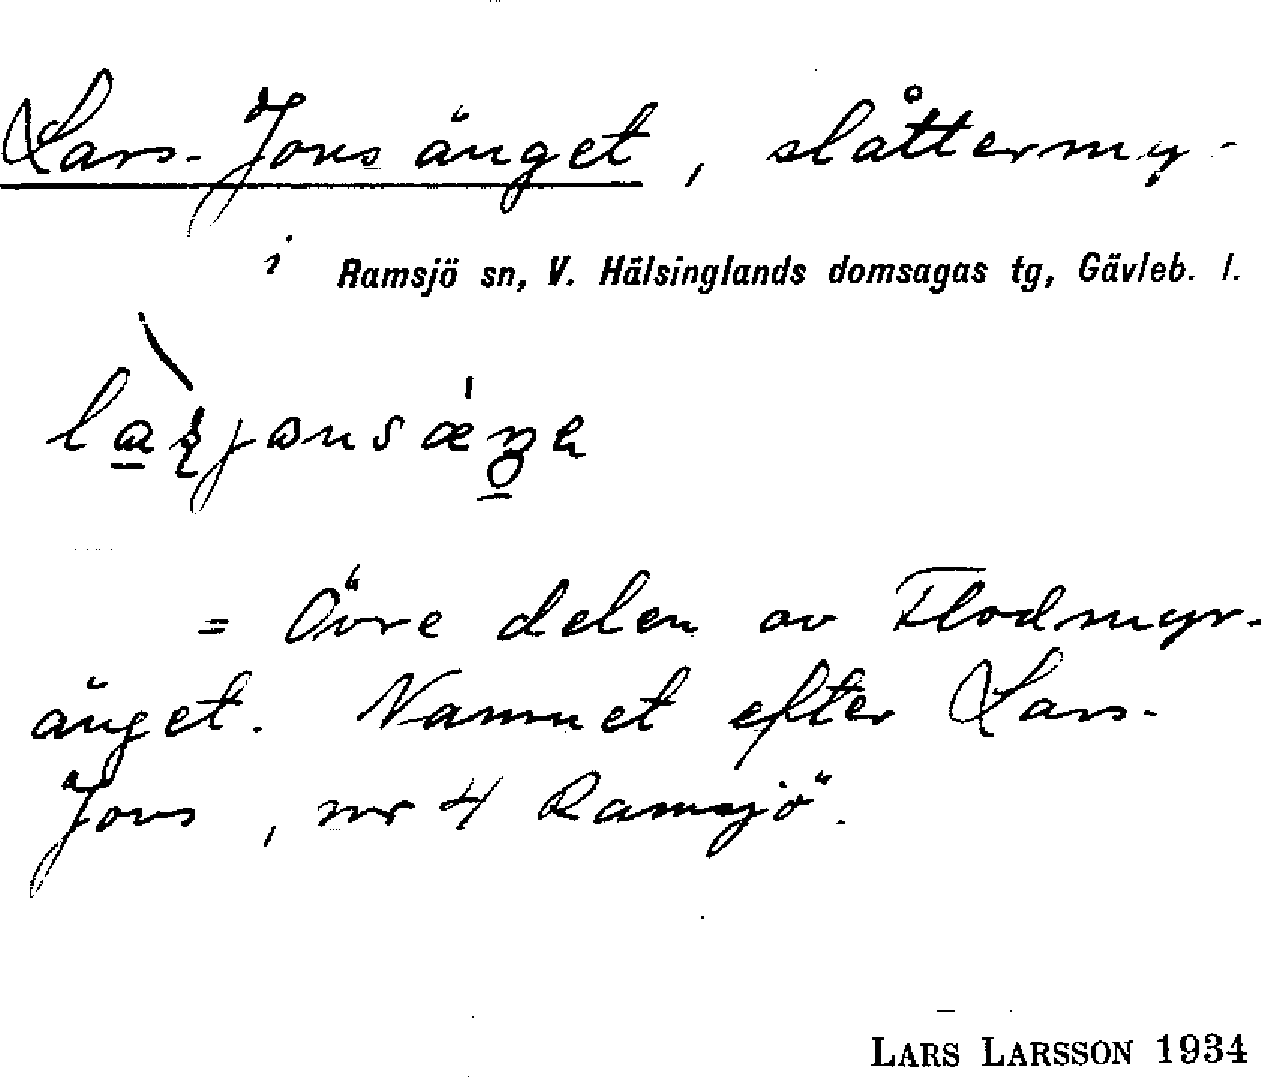 Lars-Jons änget, slåttermy-
i Ramsjö sn, V. Hälsinglands domsagas tg, Gävleb. l.
= Övre delen av Flodmyr-
änget. Namnet efter Lars-
Jons, nr 4 Ramsjö.
LARS LARSSON 1934